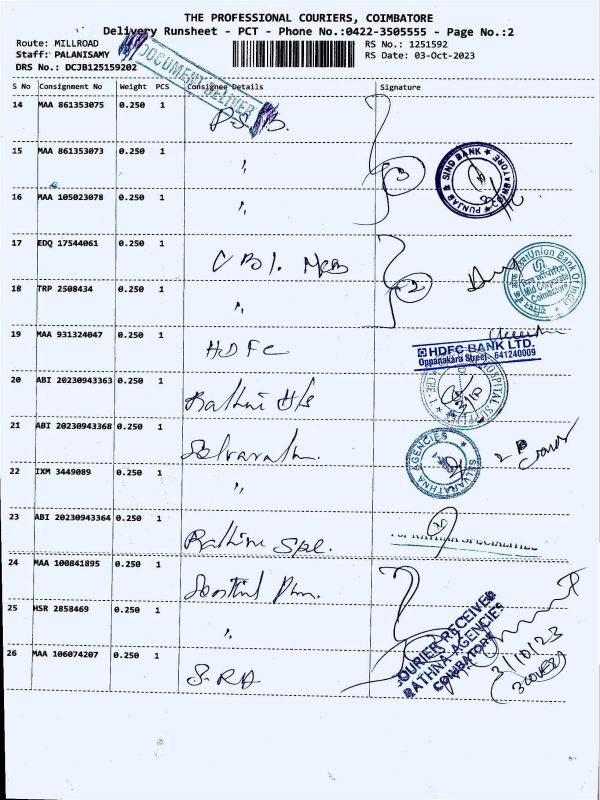 THE PROFESSIONAL COURIERS, COIMBATORE
Delivery Runsheet - PCT - Phone No.:0422-3505555 - Page No.:2
Route: MILLROAD
RS No.: 1251592
Staff: PALANISAMY
RS Date: 03-Oct-2023
DRS No.: DCJB125159202
DOCUMENT DELIVER
S No Consignment No Weight PCS Consignee Details Signature
14 MAA 861353075 0.250 1 P.S.B.
15 MAA 861353073 0.250 1 "
3
PUNJAB & SIND BANK * COIMBATORE *
16 MAA 105023078 0.250 1 "
17 EDQ 17544061 0.250 1 C B I.
Union Bank Of India
Mid Corporate
Coimbatore
18 TRP 2508434 0.250 1 "
2
19 MAA 931324047 0.250 1 HDFC
HDFC BANK LTD.
Oppanakara Street, 641240009
20 ABI 20230943363 0.250 1 Rathna
HOSPITAL SUPPLI
3/10
21 ABI 20230943368 0.250 1 Selvarath.
SELVARATHNA AGENCIES
COIMBATORE
22 IXM 3449089 0.250 1 "
23 ABI 20230943364 0.250 1 Rathna Spe.
RATHNA SPECIALITIES
24 MAA 100841895 0.250 1
25 HSR 2858469 0.250 1 "
COURIER RECEIVED
RATHNA AGENCIES
COIMBATORE
3/10/23
3 COVERS
26 MAA 106074207 0.250 1 S.RA